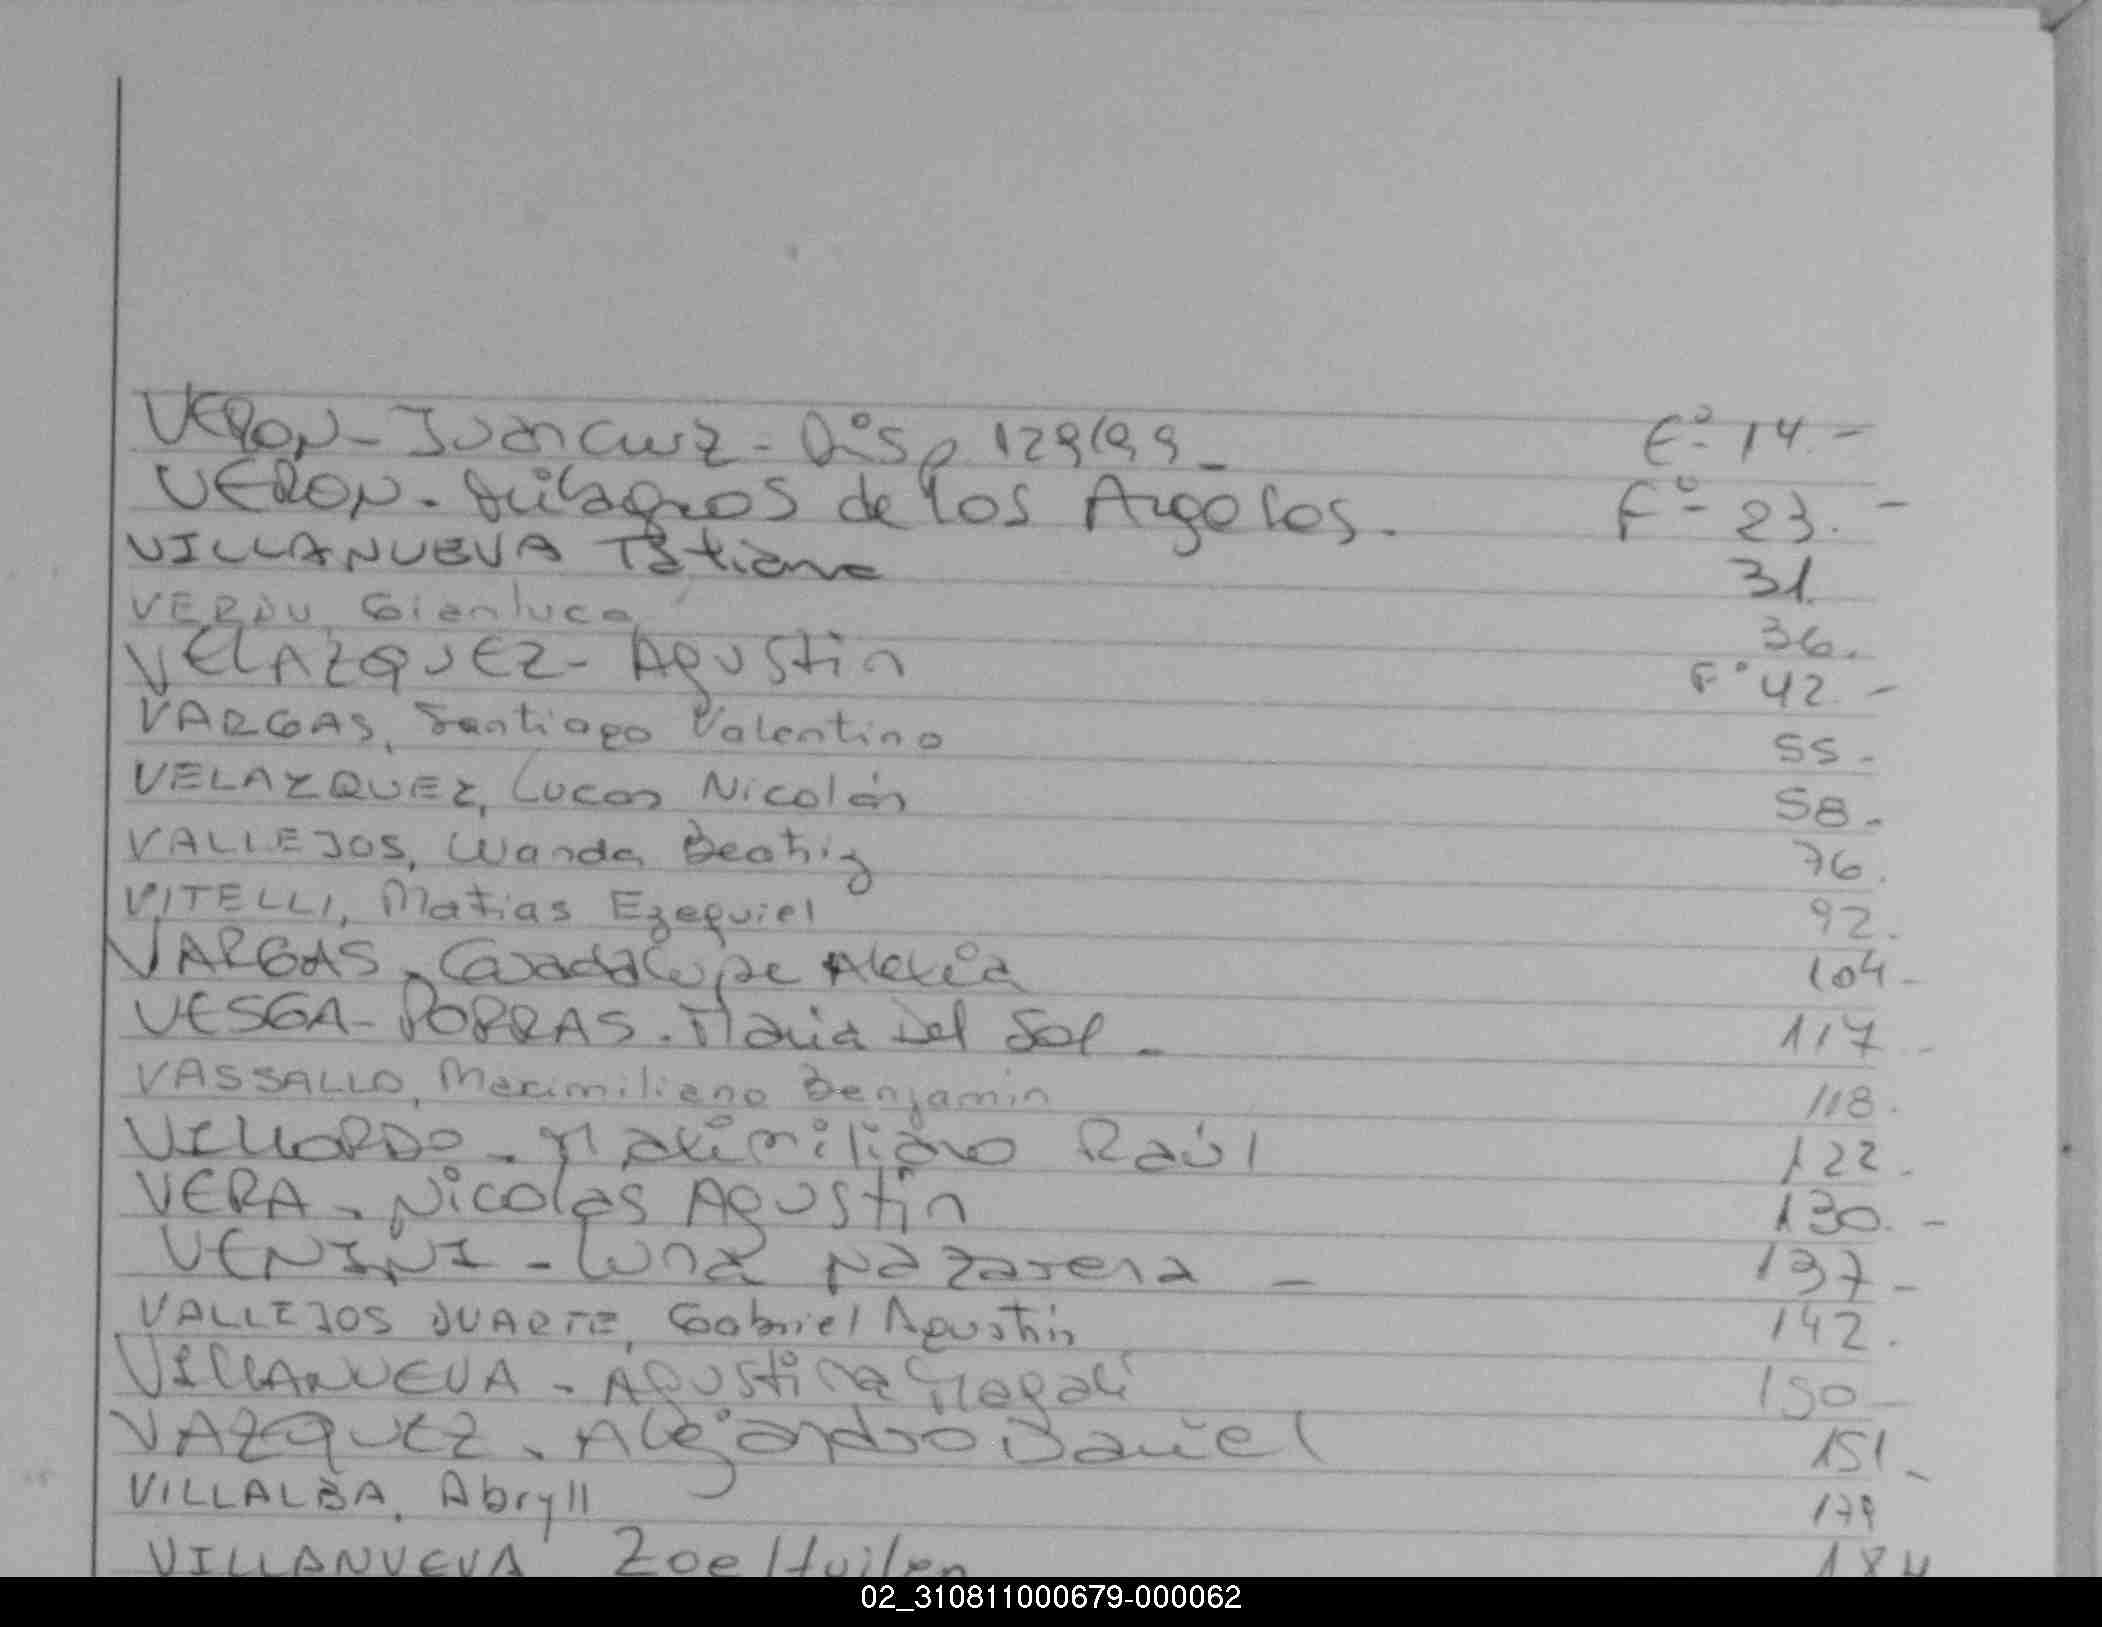 VERON - Juan Cruz - Disp 129/99 - Fº 14. -
VERON - Milagros de los Angeles. Fº - 23. -
VILLANUEVA Tatiana 31
VERDU, Gianluca 36.
VELAZQUEZ - Agustin Fº 42. -
VARGAS, Santiago Valentino 55 -
VELAZQUEZ, Lucas Nicolás 58 -
VALLEJOS, Wanda Beatriz 76.
VITELLI, Matias Ezequiel 92.
VARGAS - Guadalupe Alexia 104 -
VESGA - PORRAS. Maria Del Sol - 117 -
VASSALLO, Maximiliano Benjamin 118.
VILLORDO - Maximiliano Raúl 122.
VERA - Nicolas Agustin 130. -
VENINI - Luna Nazarena - 137 -
VALLEJOS DUARTE, Gabriel Agustin 142.
VILLANUEVA - Agustina Magalí 150 -
VAZQUEZ - Alejandro Daniel 151 -
VILLALBA, Abryll 179
VILLANUEVA Zoe Huilen 184
02_310811000679-000062